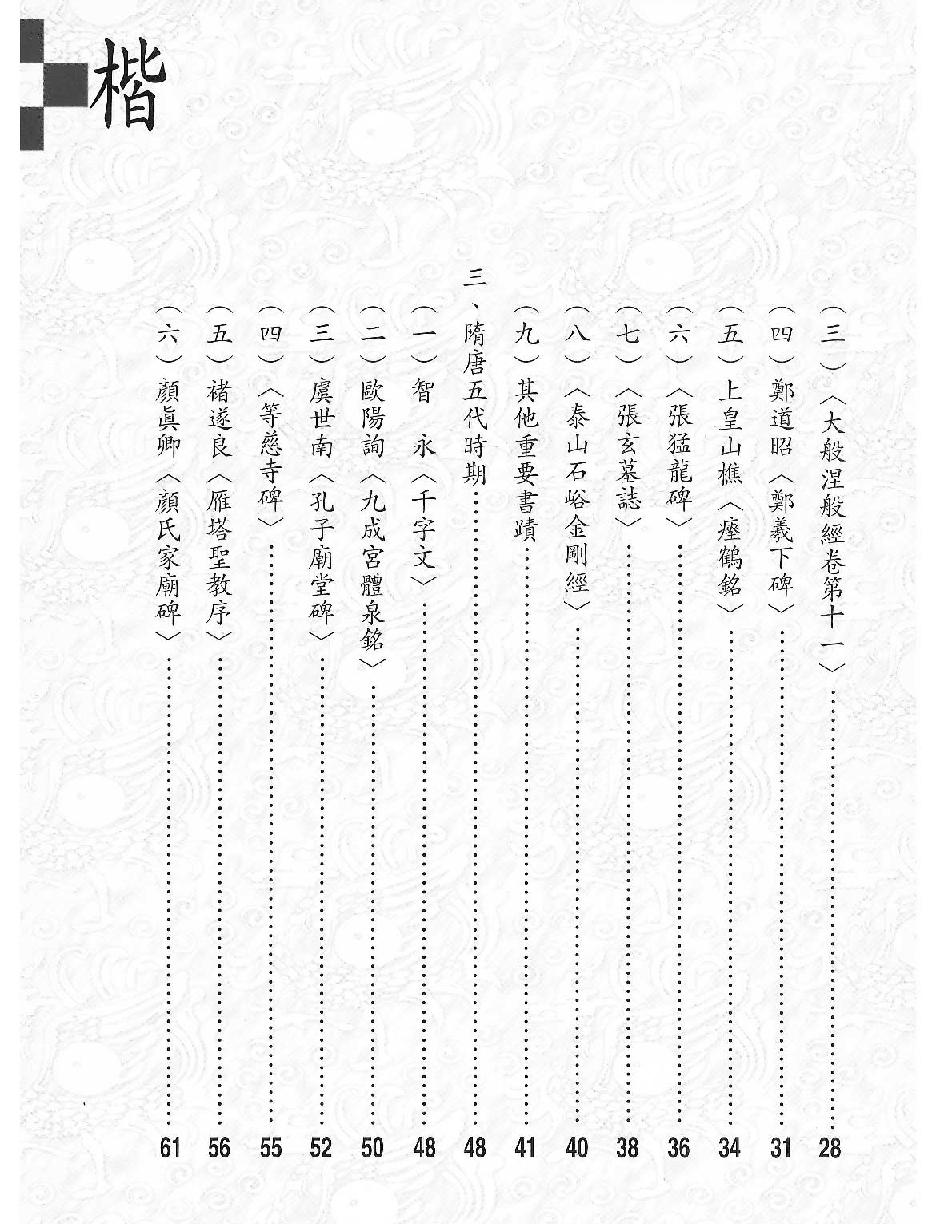 楷
(三)〈大般涅般經卷第十一〉 28
(四)鄭道昭〈鄭羲下碑〉 31
(五)上皇山樵〈瘞鶴銘〉 34
(六)〈張猛龍碑〉 36
(七)〈張玄墓誌〉 38
(八)〈泰山石峪金剛經〉 40
(九)其他重要書蹟 41
三、隋唐五代時期 48
(一)智 永〈千字文〉 48
(二)歐陽詢〈九成宮體泉銘〉 50
(三)虞世南〈孔子廟堂碑〉 52
(四)〈等慈寺碑〉 55
(五)褚遂良〈雁塔聖教序〉 56
(六)顏眞卿〈顏氏家廟碑〉 61